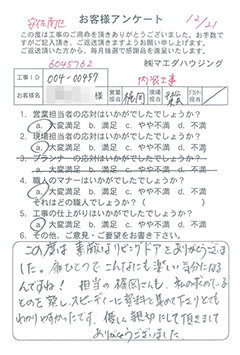 安佐南区
お客様アンケート
12/21
この度は工事のご用命を頂きありがとうございました。お手数で
すがご記入頂き、ご返送頂きますようお願い申し上げます。
ご返送頂いた方から、毎月抽選で感謝品を呈しております。
6045762
㈱マエダハウジング
工事ID
004-00457
内装工事
お客様名
様
営業担当
福岡
現場担当
プラン担当
1. 営業担当者の応対はいかがでしたでしょうか?
a. 大変満足 b. 満足 c. やや不満 d. 不満
2. 現場担当者の応対はいかがでしたでしょうか?
a. 大変満足 b. 満足 c. やや不満 d. 不満
3. プランナーの応対はいかがでしたでしょうか?
a. 大変満足 b. 満足 c. やや不満 d. 不満
4. 職人のマナーはいかがでしたでしょうか?
a. 大変満足 b. 満足 c. やや不満 d. 不満
それはどの職人でしょうか?( )
5. 工事の仕上がりはいかがでしたでしょうか?
a. 大変満足 b. 満足 c. やや不満 d. 不満
6. その他、ご意見・ご要望をお書き下さい。
この度は 素敵なリビングドアをありがとうございま
した。扉ひとつで こんなにも楽しい気分になる
んですね! 担当の福岡さんも、私の求めている
ものを察し、スピーディーに資料を集めて下さりとても
わかりやすかったです。優しく親切にして頂きまして
ありがとうございました。